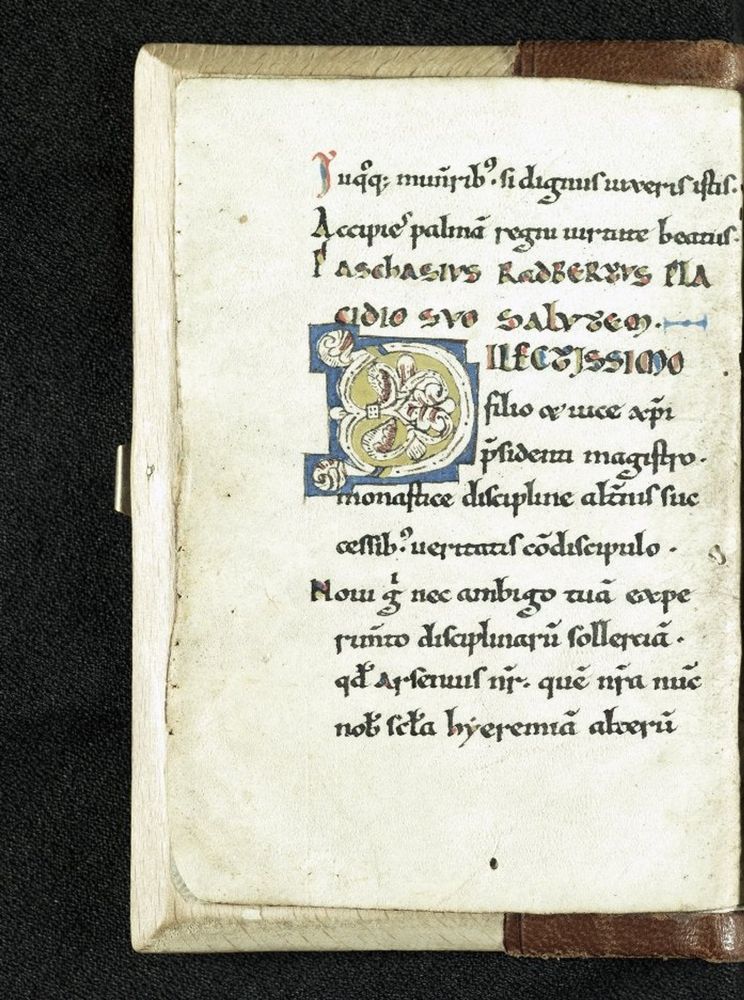 Tuqͦq; mun̄ib⁹. si dignus uixeris istis.
Accipies palmā regni uirtute beatus.
PASChASIVS RADBERTVS PLA
CIDIO SVO SALVTEM.
DILECTISSIMO
filio & uice xp̄i
p̄sidenti magistro.
monastice discipline alt̄nis suc
cessib⁹. ueritatis cōdiscipulo.
Noui g̊ nec ambigo tuā expe
rim̄to disciplinarū sollertiā.
qđ Arsenius nr̄. quē nr̄a nūc
nob̄ scl̄a hyeremiā alterū